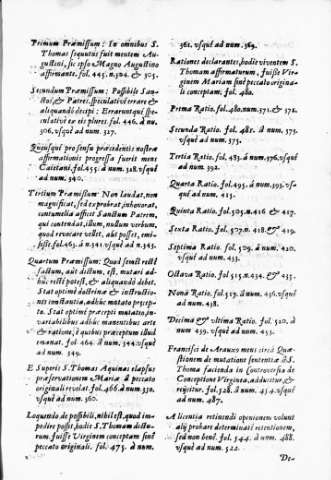 Primum Præmissum: In omnibus S.
Thomas sequutus fuit mentem Au-
gustini, sic ipso Magno Augustino
affirmante. fol. 445. n. 304. & 305.
Secundum Præmissum: Possibile San-
ctos, & Patres speculativè errare &
aliquando decepi: Erraruntque spe-
culativè ex eis plures fol. 446. à nu.
306. vsque ad num. 327.
pro sensu præcedentis nostræ
affirmationis progressa fuerit mens
Caietani. fol. 455. à num. 328. vsque
ad num. 340.
Tertium Præmissum: Non laudat, non
magnificat, sed exprobrat, inhonorat,
contumelia afficit Sanctum Patrem,
qui contendat, illum, nullum verbum,
quod revocare vellet, aut posset, emi-
sisse. fol. 463. à n. 341. vsque ad n. 343.
Quartum Præmissum: Quod semel rectè
factum, aut dictum, est, mutari ad-
huc rectè potest, & aliquando debet.
Stat optimè doctrinæ & instructio-
nis constantia, adhuc mutato præcep-
to. Stat optimè præcepti mutatio, in-
variabilibus adhuc manentibus arte
& ratione, è quibus præceptum illud
emanat. fol. 464. à num. 344. vsque
ad num. 349.
E Superis S. Thomas Aquinas elapsus
præservationem Mariæ à peccato
originali revolat. fol. 466. à num. 350.
vsque ad num. 360.
Loquendo de possibili, nihil est, quod im-
pedire possit, quod S. Thomam dictu-
rum, fuisse Virginem conceptam sine
peccato originali. fol. 475. à num.
361. vsque ad num. 369.
Rationes declarantes, hodie viventem S.
Thomam affirmaturum, fuisse Vir-
ginem Mariam sine peccato origina-
li conceptam. fol. 480.
Prima Ratio. fol. 480. num. 371. & 372.
Secunda Ratio. fol. 482. à num. 373.
vsque ad num. 375.
Tertia Ratio. fol. 483. à num. 376. vsque
ad num. 392.
Quarta Ratio. fol. 495. à num. 393. vs-
que ad num. 415.
Quinta Ratio. fol. 505. n. 416. & 417.
Sexta Ratio. fol. 507. n. 418. & 419.
Septima Ratio. fol. 509. à num. 420.
vsque ad num. 433.
Octava Ratio. fol. 515. n. 434. & 435.
Nona Ratio. fol. 519. à num. 436. vsque
ad num. 438.
Decima & vltima Ratio. fol. 520. à
num. 439. vsque ad num. 453.
Francisci de Arauxo mens circà Quæ-
stionem de mutatione sententiæ à S.
Thoma facienda in Controversia de
Conceptione Virginis, adducitur, &
rejicitur. fol. 528. à num. 454. vsque
ad num. 487.
A licentia retinendi opinionem volunt
aliqui probare determinatè retentionem,
sed non benè. fol. 544. à num. 488.
vsque ad num. 522.
De-